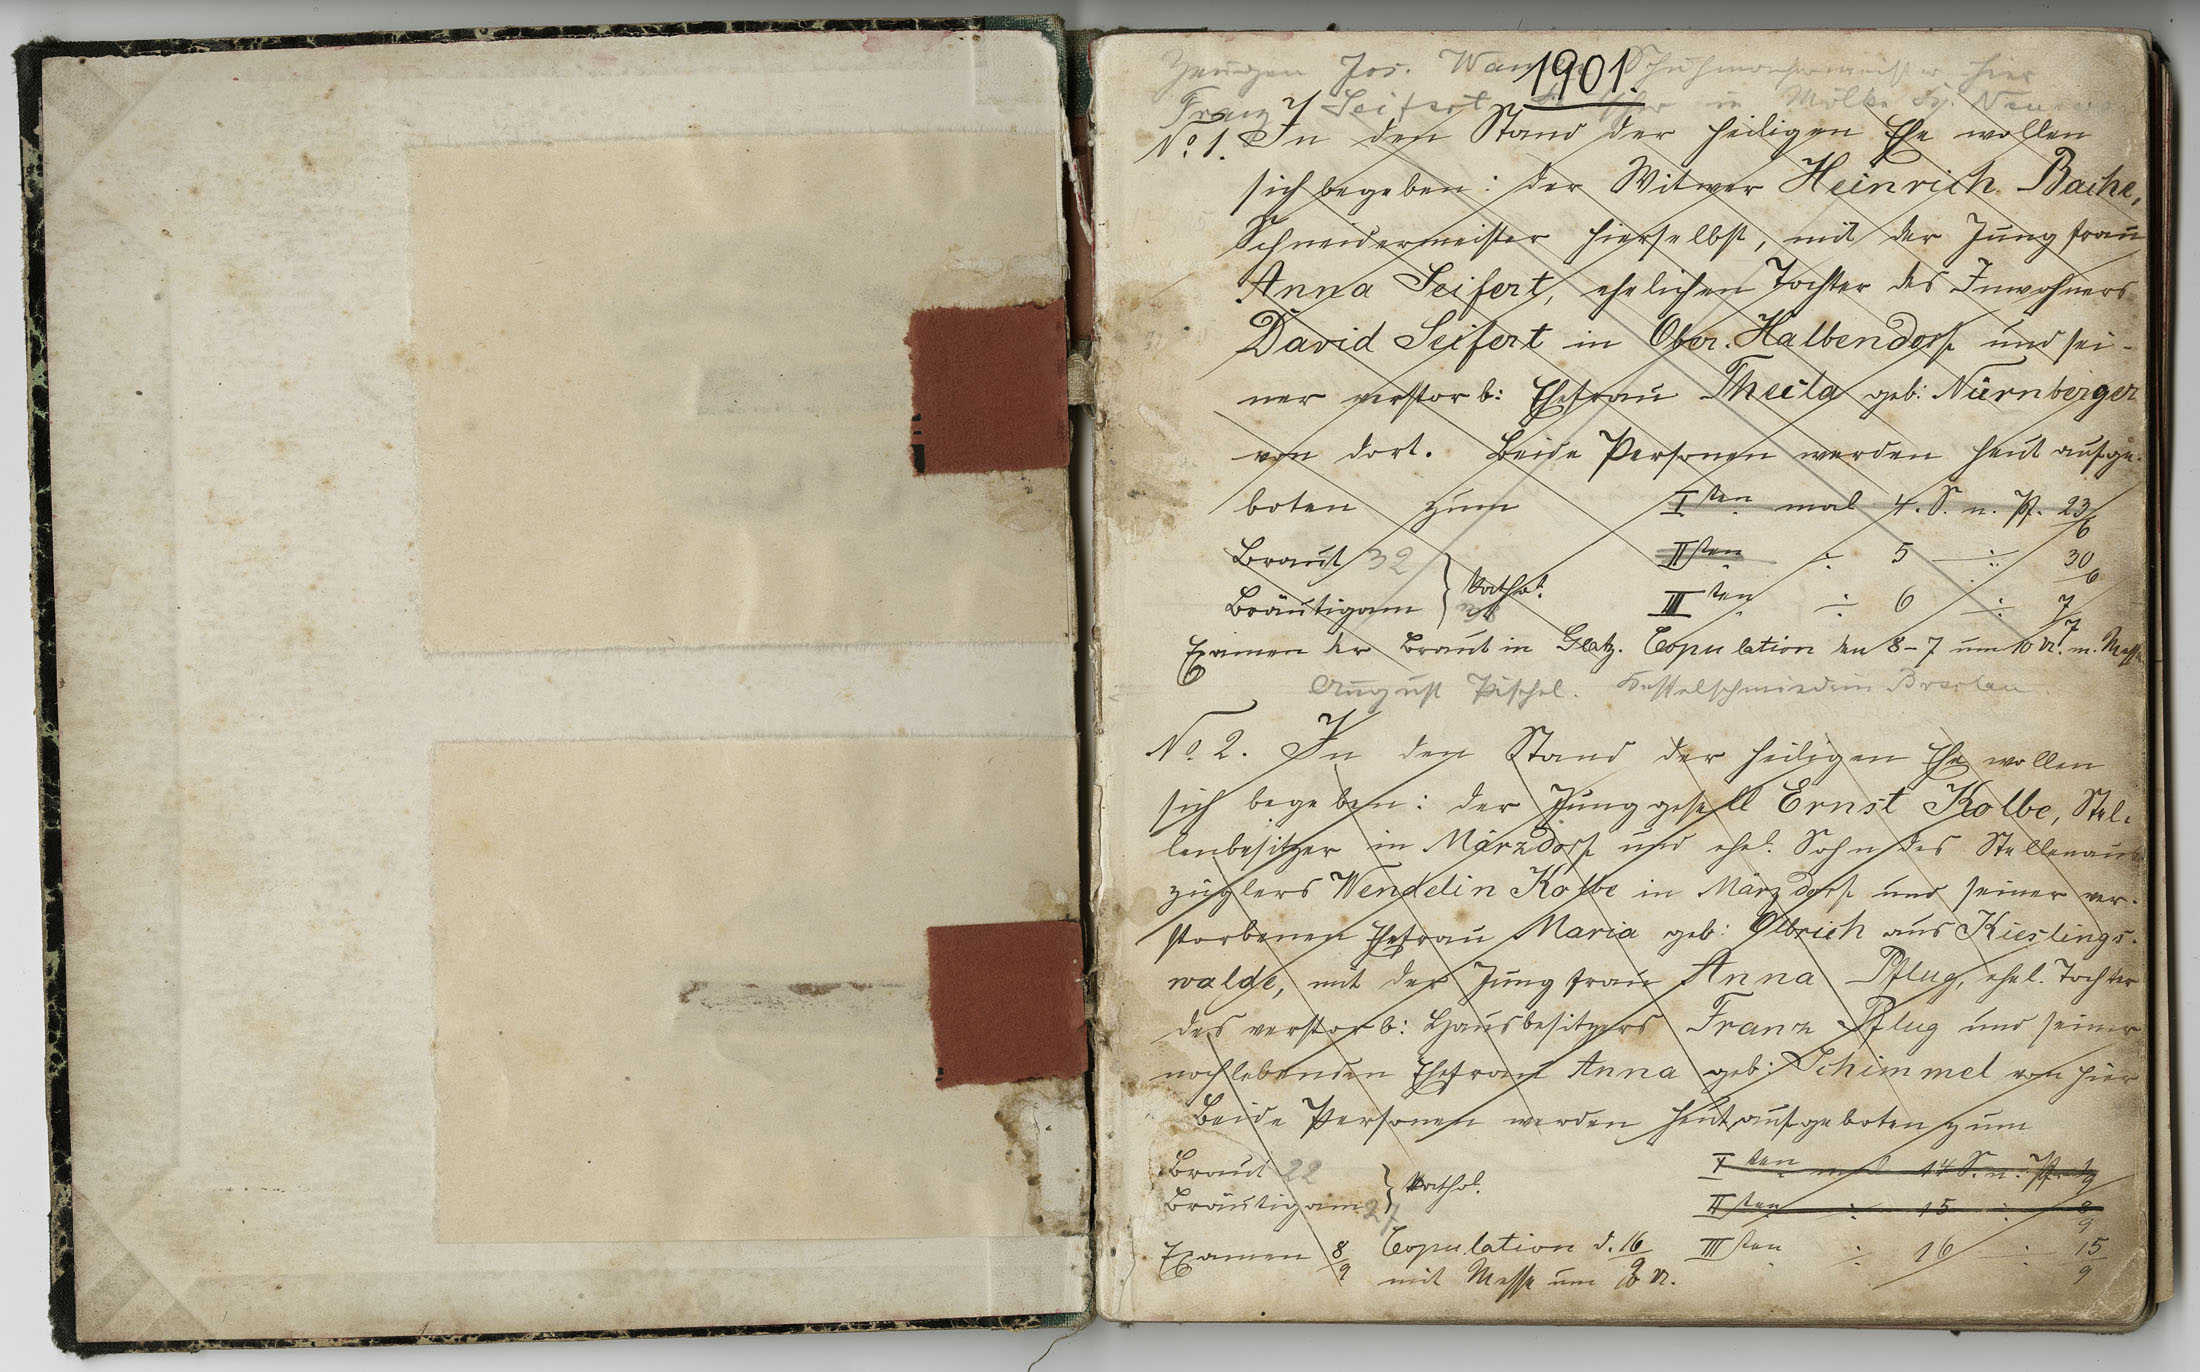 1901.
Zeugen Jos. Schuhmachermeister hier
Franz Seifert in Mölke
No. 1. In den Stand der heiligen Ehe wollen
sich begeben: der Witwer Heinrich Bache,
Schneidermeister hierselbst, mit der Jungfrau
Anna Seifert, ehelichen Tochter des Inwohners
David Seifert in Ober-Halbendorf und sei-
ner verstorb: Ehefrau Thecla geb: Nürnberger
von dort. Beide Personen werden heut aufge-
boten zum Iten mal 4. S. n. Pf. 23/6
Braut 32 IIten ÷ 5 ÷ 30/6
Bräutigam } kathol. IIIten ÷ 6 ÷ 7/7
Examen der Braut in Glatz. Copulation den 8-7 um 10 U. m. Messe
August Pischel. Kesselschmied in Breslau
No 2. In den Stand der heiligen Ehe wollen
sich begeben: der Junggesell Ernst Kolbe, Stel-
lenbesitzer in Märzdorf und ehel. Sohn des Stellenaus-
züglers Wendelin Kolbe in Märzdorf und seiner ver-
storbenen Ehefrau Maria geb: Olbrich aus Kieslings-
walde, mit der Jungfrau Anna Pflug, ehel. Tochter
des verstorb: Hausbesitzers Franz Pflug und seiner
noch lebenden Ehefrau Anna geb: Schimmel von hier
Beide Personen werden heut aufgeboten zum
Braut 22 Iten mal 14 S. n. Pf. 1/9
Bräutigam 27 } kathol. IIten ÷ 15 ÷ 8/9
Examen 8/9 Copulation d. 16/9 IIIten ÷ 16 ÷ 15/9
mit Messe um 10 U.